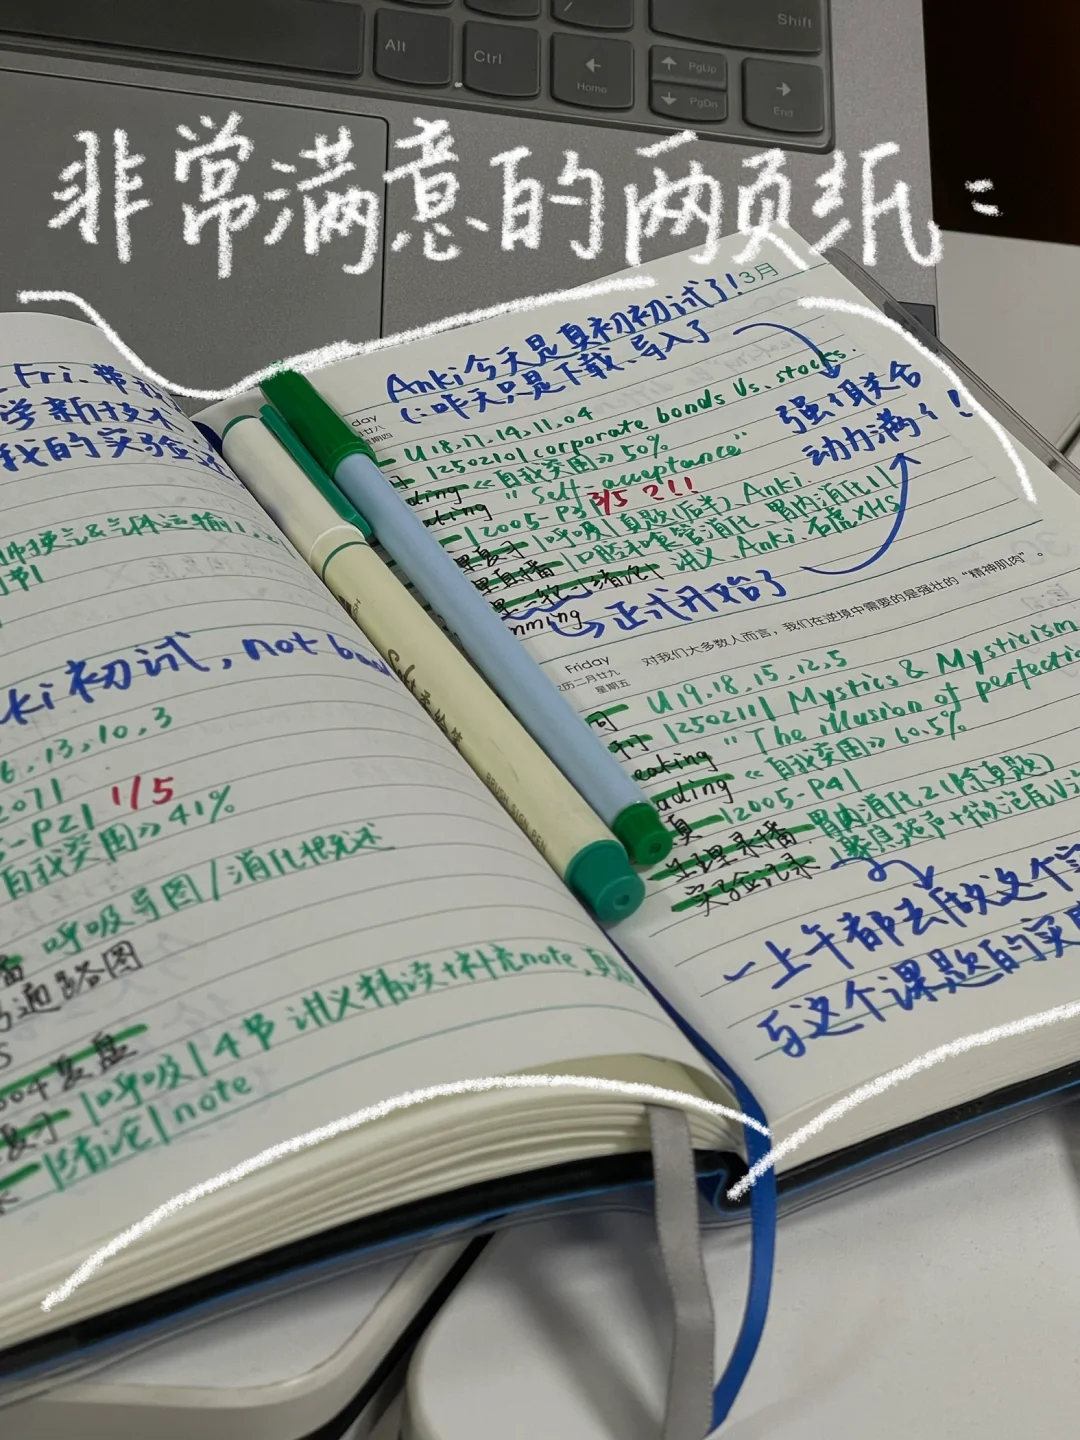 Shift
Alt
Ctrl
Home
PgUp
PgDn
End
非常满意的两页纸：
3月
Anki今天是真初初试了!
(:昨天只是下载、导入了
强强联合
动力满个!
U18,17,14,11,04
1250210|corporate bonds Vs. stocks.
《自我突围》50%
"Self-acceptance"
12005-P3| 3/5 2!!!
|呼吸|真题(后半) Anki.
|口腔和食管消化、胃内消化1|
|绪论| 讲义、Anki、石虎XHS
正式开始了
对我们大多数人而言，我们在逆境中需要的是强壮的“精神肌肉”。
Friday
农历二月廿九
星期五
U19,18,15,12,5
1250211| Mystics & Mysticism
eating "The illusion of perfectio
ading 《自我突围》60.5%
真 12005-P4|
生理录播 胃内消化2(除真题)
实验记录
一上午都去做这个实
与这个课题的实
Fri.带
学新技术
我的实验
肺换气&气体运输1
ki初试, not bad
6,13,10,3
2071
-P2| 1/5
自我突围》41%
呼吸导图/消化概述
通路图
004复盘 4节 讲义精读+补充note,
复习 |呼吸|
|绪论|note